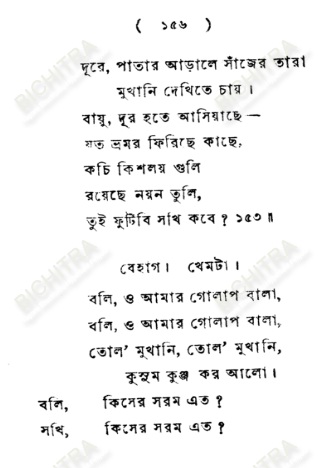 ( ১৫৬ )
দূরে, পাতার আড়ালে সাঁজের তারা
মুখানি দেখিতে চায় ।
বায়ু, দূর হতে আসিয়াছে —
যত ভ্রমর ফিরিছে কাছে,
কচি কিশলয় গুলি
রয়েছে নয়ন তুলি,
তুই ফুটিবি সখি কবে ? ১৫৩ ॥
বেহাগ । খেমটা ।
বলি, ও আমার গোলাপ বালা,
বলি, ও আমার গোলাপ বালা,
তোল' মুখানি, তোল' মুখানি,
কুসুম কুঞ্জ কর আলো ।
বলি, কিসের সরম এত ?
সখি, কিসের সরম এত ?
BICHITRA
BICHITRA
BICHITRA
BICHITRA
BICHITRA
BICHITRA